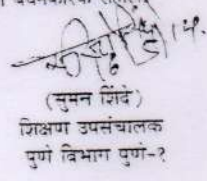 (सुमन शिंदे)
शिक्षण उपसंचालक
पुणे विभाग पुणे-१